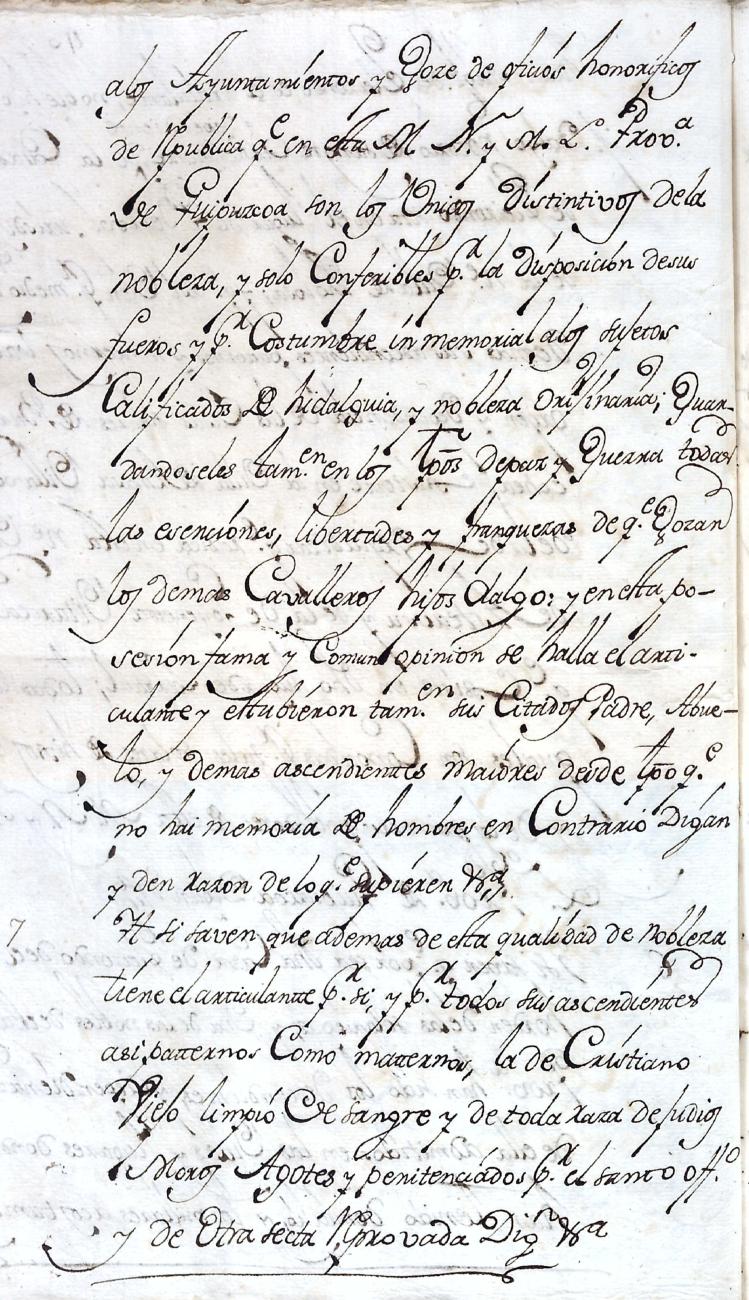 alos Ayuntamientos y Goze de oficios honorificos
de Republica q.e en esta M. N. y M. L. Prov.a
de Guipuzcoa son los Unicos Distintivos dela
nobleza, y solo Conferibles p.r la Disposicion desus
fueros y p.r Costumbre inmemorial alos sujetos
Calificados de hidalguia, y nobleza Orijinaria; Guar-
dandoseles tam.en en los tpos depaz y Guerra todas
las esenciones, libertades y franquezas de q.e Gozan
los demas Cavalleros hijos dalgo; y en esta po-
sesion fama y Comun opinion se halla el arti-
culante y estubieron tam.en sus Citados Padre, Abue-
lo, y demas ascendientes maiores desde tpo q.e
no hai memoria de hombres en Contrario Digan
y den razon de lo q.e supieren &a.
7 Yt si saven que ademas de esta qualidad de nobleza
tiene el articulante p.r si, y p.r todos sus ascendientes
asi patternos Como matternos, la de Cristiano
Viejo limpio de sangre y de toda raza de judios
Moros Agotes y penitenciados p.r el santo off.o
y de Otra secta Reprovada Dig.n &a